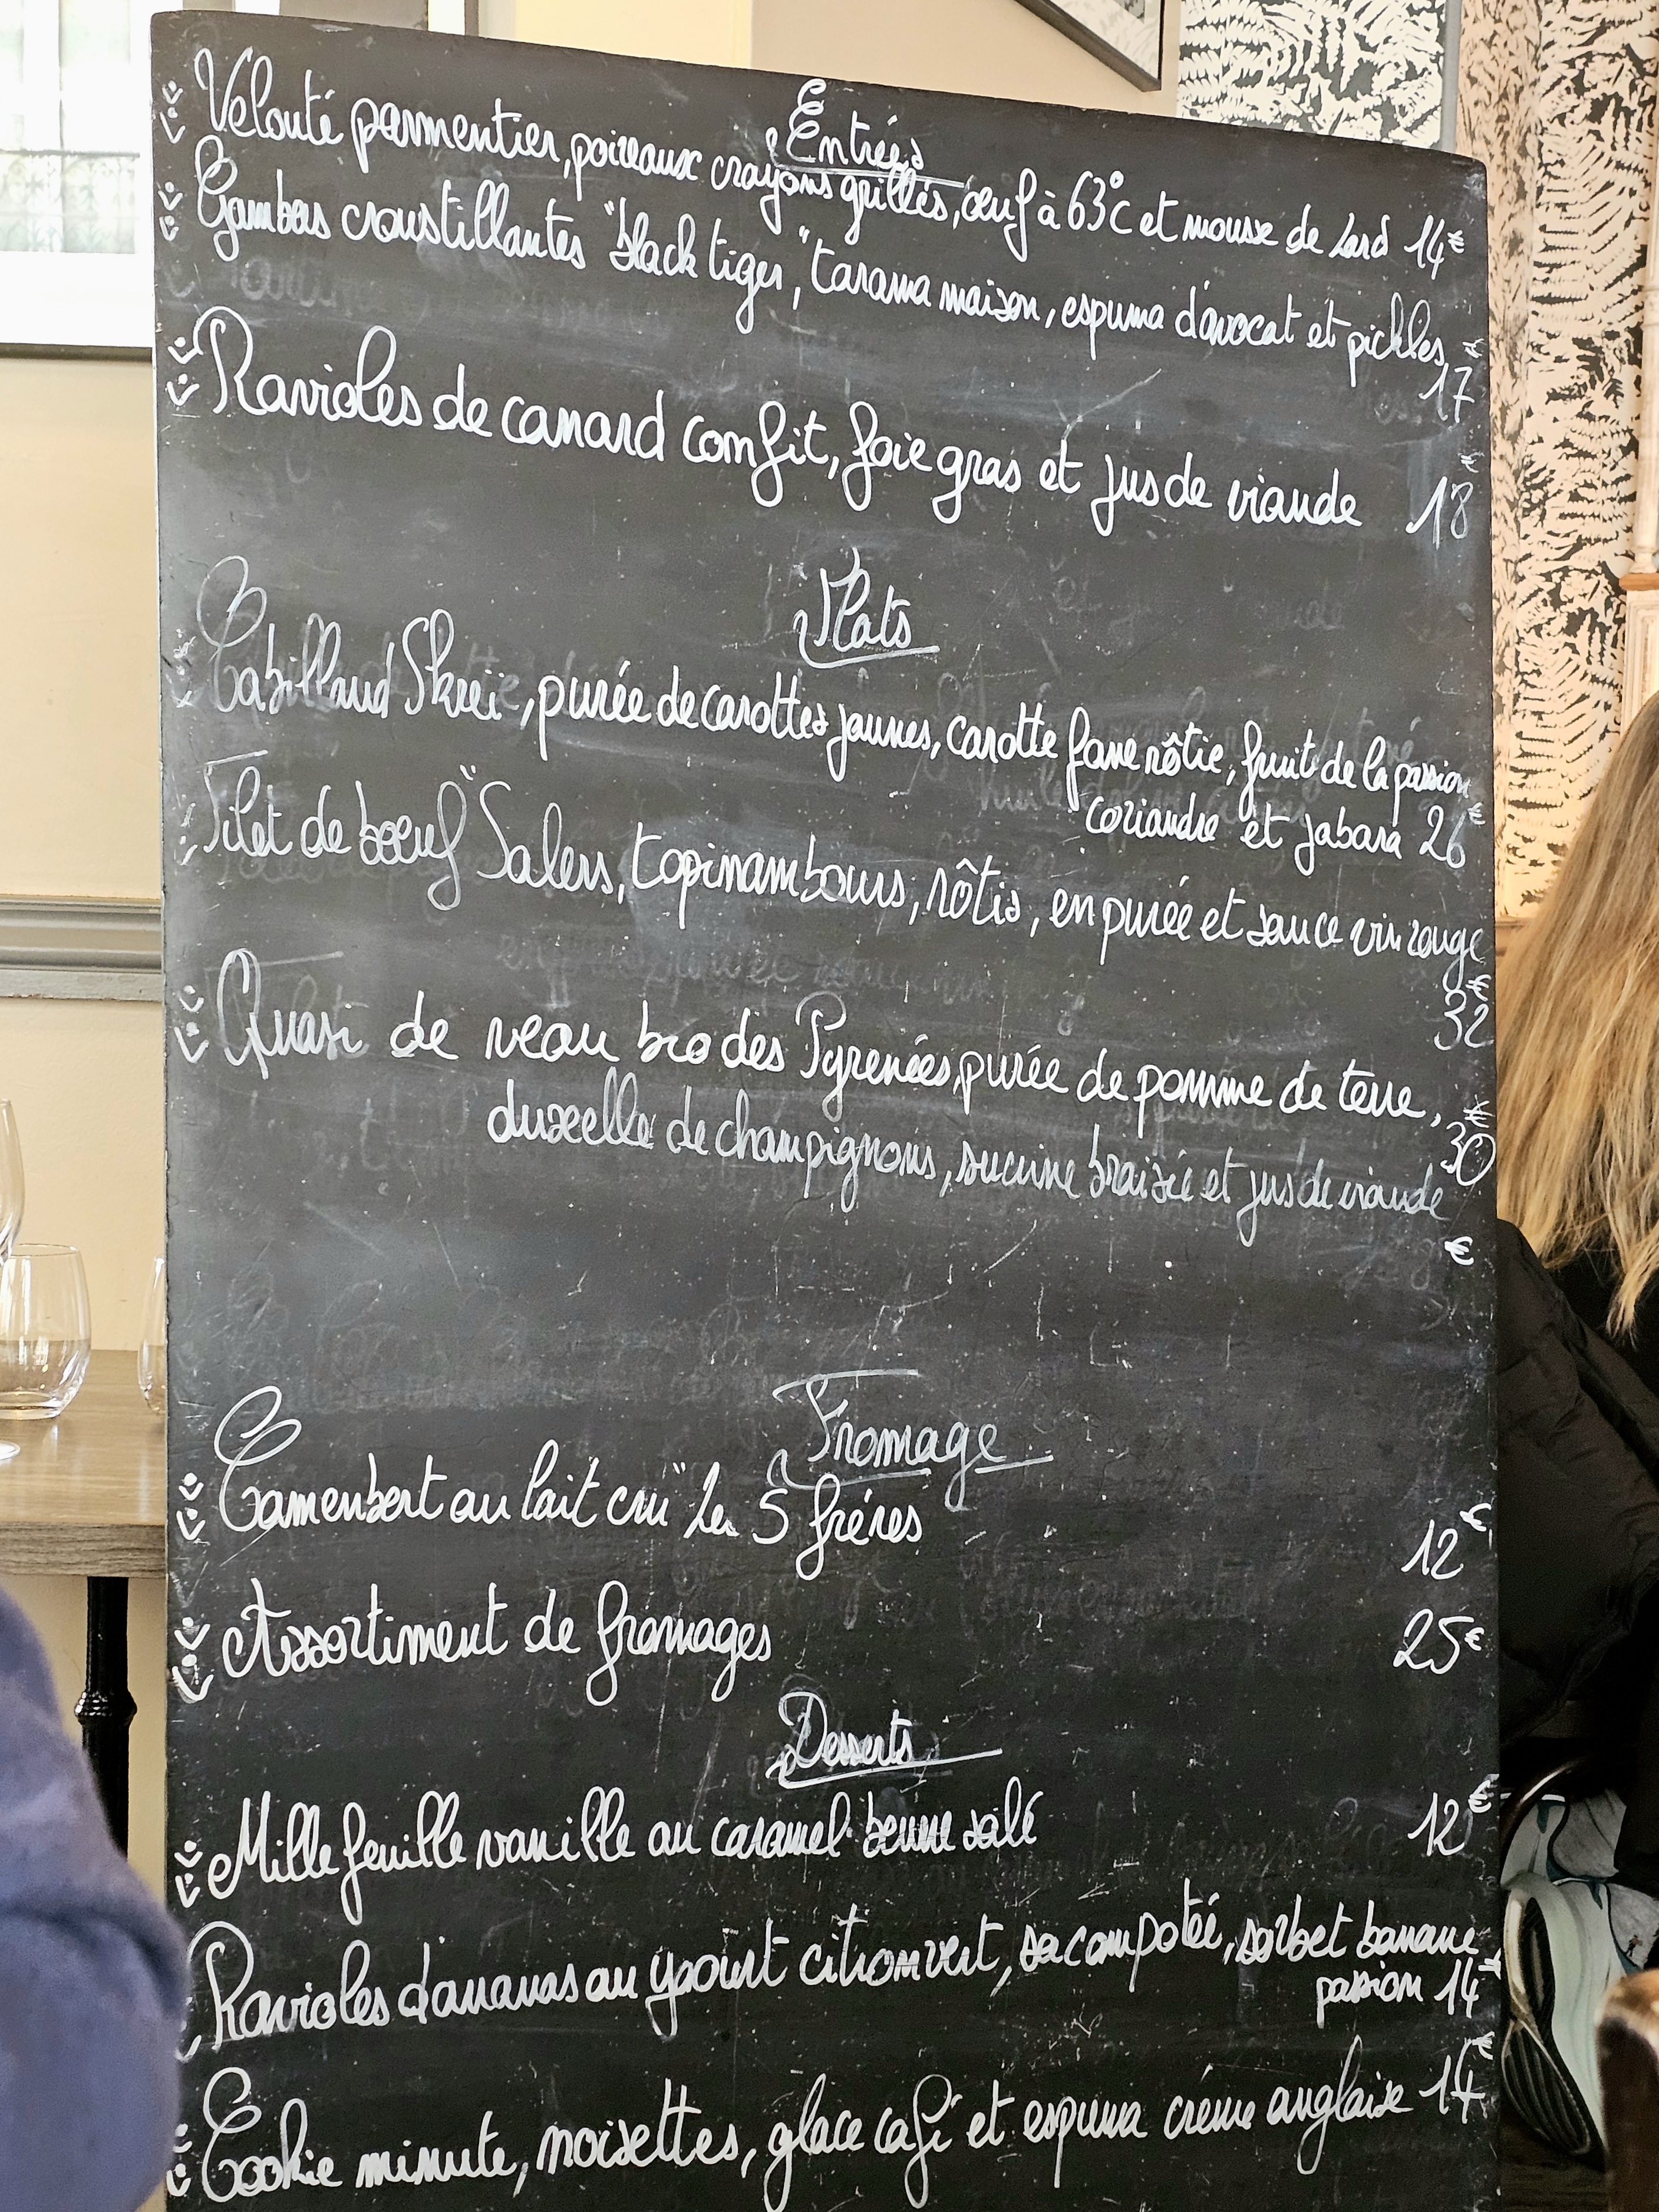 Entrées
Velouté parmentier, poireaux crayons grillés, œuf à 63°C et mousse de Lard 14€
Gambas croustillantes "black tiger," tarama maison, espuma d'avocat et pickles
17€
Ravioles de canard confit, foie gras et jus de viande 18€
Plats
Cabillaud Skreï, purée de carottes jaunes, carotte fane rôtie, fruit de la passion
coriandre et jabara 26€
Filet de bœuf "Salers, topinambours, rôtis, en purée et sauce vin rouge
32€
Quasi de veau bio des Pyrenées, purée de pomme de terre,
30€
duxelle de champignons, sucrine braisée et jus de viande
€
Fromage
Camembert au lait cru "Les 5 fréres 12€
Assortiment de fromages 25€
Desserts
Mille feuille vanille au caramel beurre salé 12€
Ravioles d'ananas au yaourt citron vert, sa compotée, sorbet banane
passion 14€
Cookie minute, noisettes, glace café et espuma crème anglaise 14€